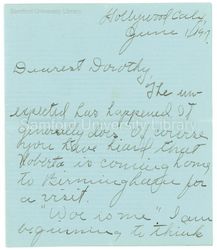 Samford University Library
Hollywood Calif,
June
Dearest Dorothy,
The un-
expected has happened. It
generally does. Of course
you have heard that
Roberta is coming home
to Birmingham for
a visit.
"Woe is me" I am
beginning to think